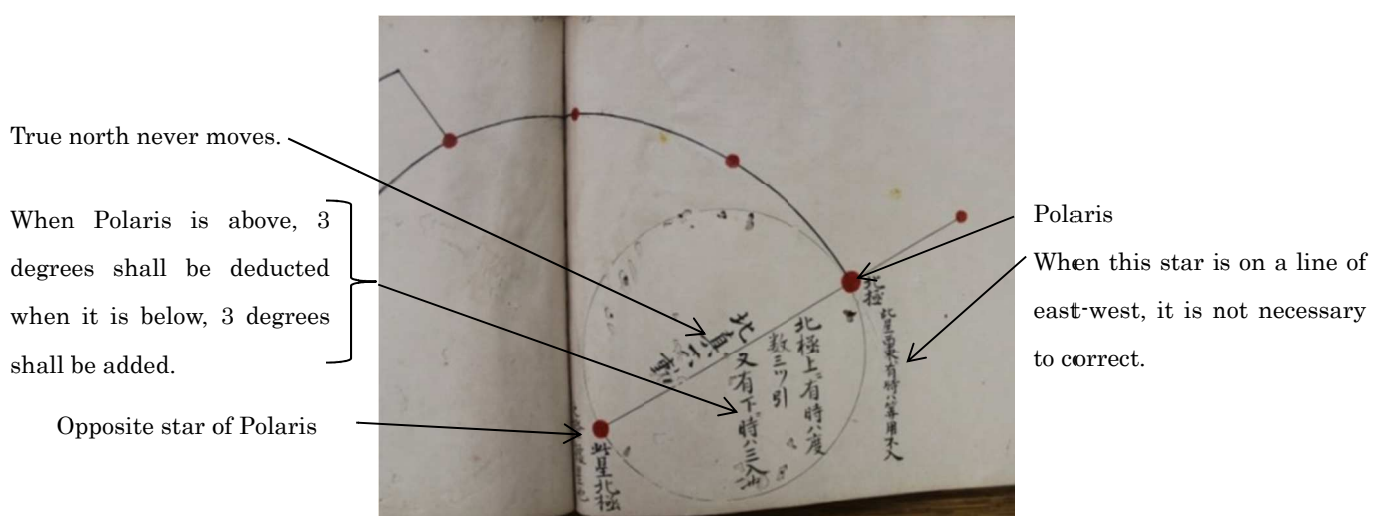 True north never moves.
When Polaris is above, 3
degrees shall be deducted
when it is below, 3 degrees
shall be added.
Opposite star of Polaris
Polaris
When this star is on a line of
east-west, it is not necessary
to correct.
北極
北極上有時八度
数三ツ引
又有下時八三入
此星北極